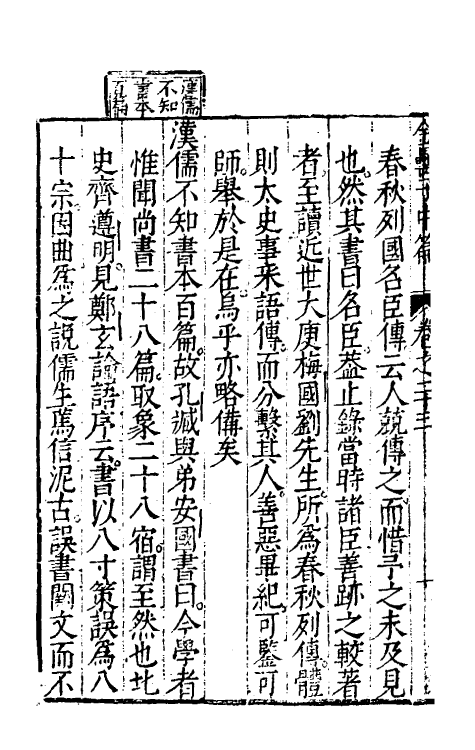 春秋列國名臣傳云人競傳之而惜予之未及見
也然其書曰名臣葢止錄當時諸臣善跡之較著
者至讀近世大庾梅國劉先生所爲春秋列傳體
則太史事采語傳而分繫其人善惡畢紀可鑒可
師舉於是在烏乎亦略備矣
漢儒不知書本百篇
漢儒不知書本百篇故孔臧與弟安國書曰今學者
惟聞尚書二十八篇取象二十八宿謂至然也北
史齊遵明見鄭玄論語序云書以八寸策誤爲八
十宗因曲爲之說儒生篤信泥古誤書闕文而不